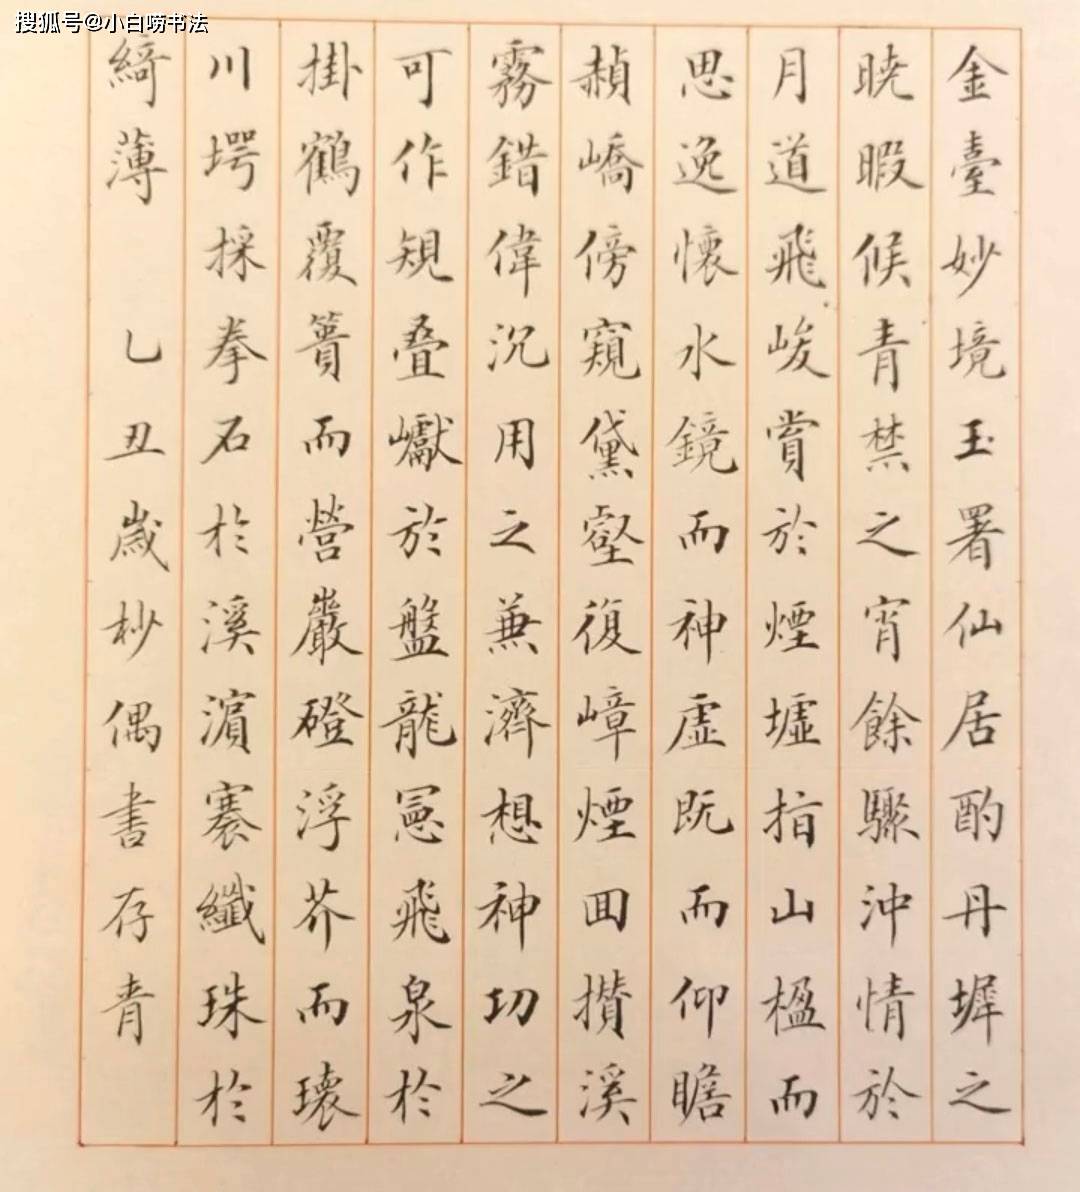 搜狐号@小白唠书法
金臺妙境玉署仙居酌丹墀之
晓暇候青禁之宵餘驟沖情於
月道飛峻賞於煙墟指山楹而
思逸懷水鏡而神虛既而仰瞻
赬嶠傍窺黛壑復嶂煙回攅溪
霧錯偉沉用之兼濟想神功之
可作規叠巘於盤龍冩飛泉於
掛鶴覆簣而營巖磴浮芥而環
川堮採拳石於溪濵褰纖珠於
綺薄 乙丑歲杪偶書存青